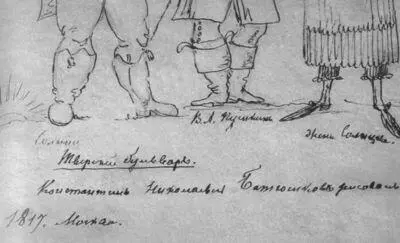 В. Л. Пушкинъ
Солнцев
жена Солнцева.
Тверской бульваръ.
Константинъ Николаевичъ Батюшковъ рисовалъ
1817. Москва.